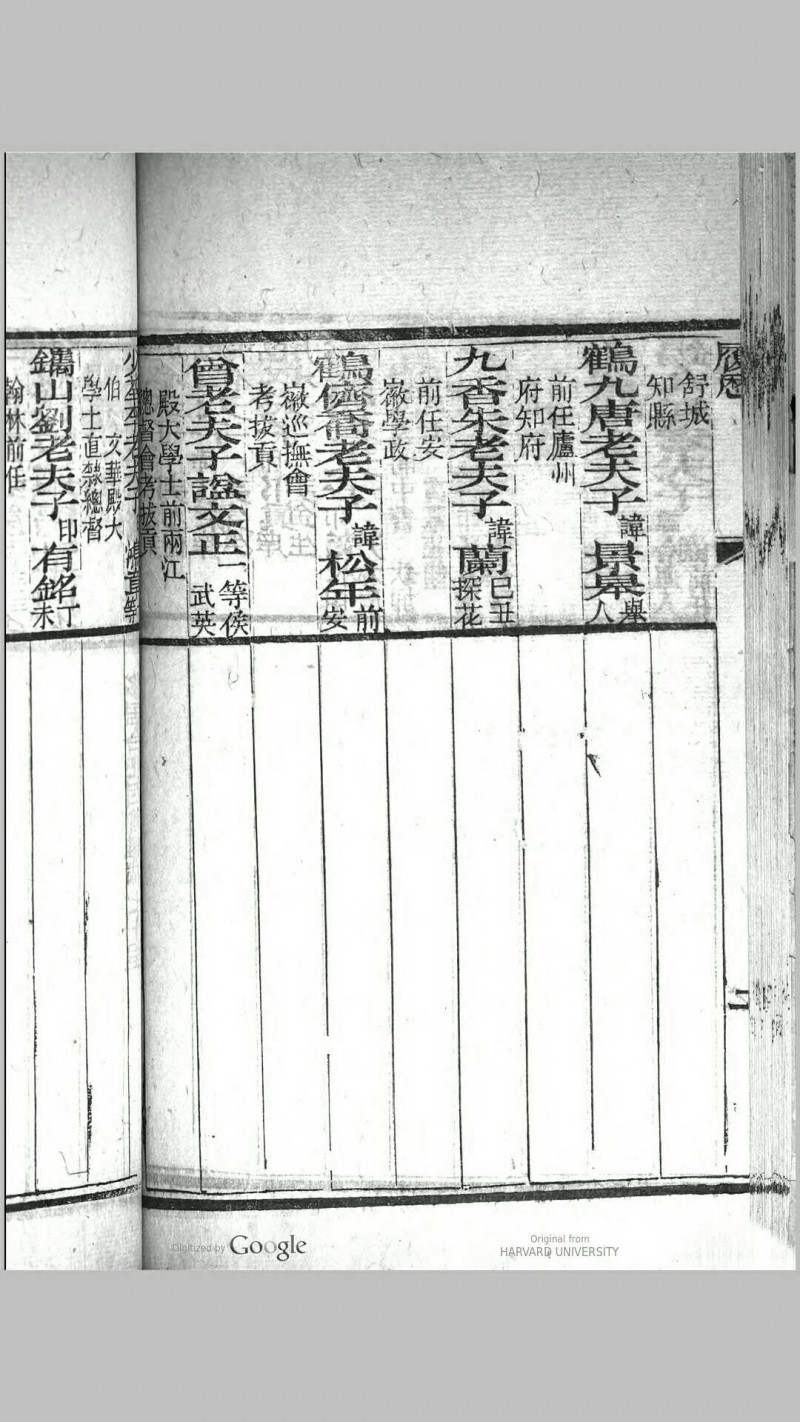 履歷
舒城
知縣
鶴九唐老夫子 諱 景皋 舉人
前任廬州
府知府
九香朱老夫子 諱 蘭 己丑探花
前任安
徽學政
鶴儕喬老夫子 諱 松年 前安
徽巡撫會
考拔貢
曾老夫子 諡文正 一等侯武英
殿大學士前兩江
總督會考拔貢
少荃李老夫子 一等
伯 文華殿大
學士直隸總督
鐫山劉老夫子 印 有銘 丁未
翰林前任
二
Digitized by Google
Original from
HARVARD UNIVERSITY